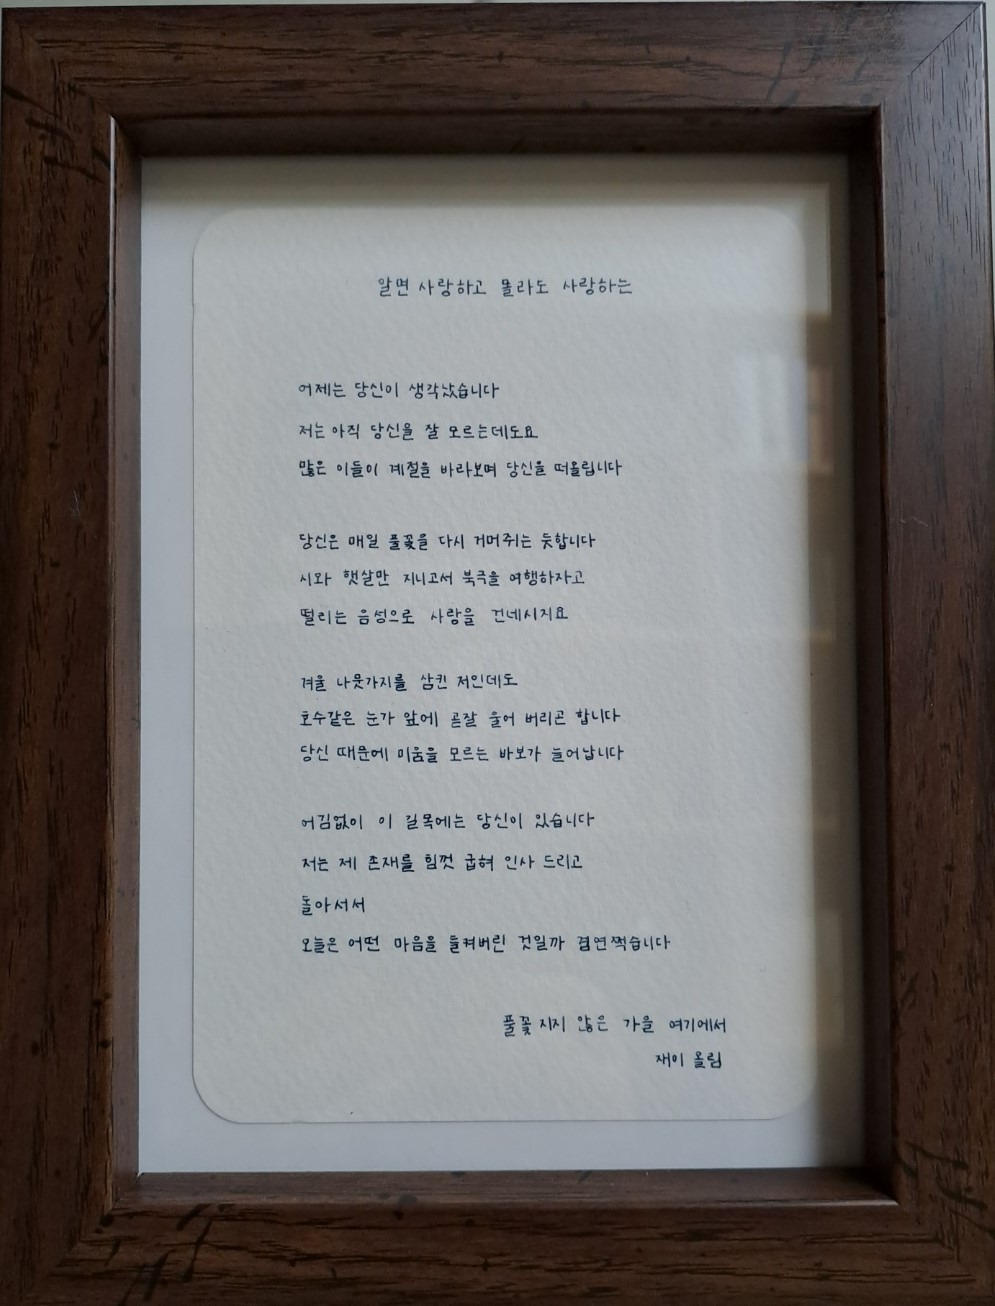 알면 사랑하고 몰라도 사랑하는
어제는 당신이 생각났습니다
저는 아직 당신을 잘 모르는데도요
많은 이들이 계절을 바라보며 당신을 떠올립니다
당신은 매일 풀꽃을 다시 거머쥐는 듯합니다
시와 햇살만 지니고서 북극을 여행하자고
떨리는 음성으로 사랑을 건네시지요
겨울 나뭇가지를 삼킨 저인데도
호수같은 눈가 앞에 곧잘 울어 버리곤 합니다
당신 때문에 미움을 모르는 바보가 늘어납니다
어김없이 이 길목에는 당신이 있습니다
저는 제 존재를 힘껏 굽혀 인사 드리고
돌아서서
오늘은 어떤 마음을 들켜버린 것일까 겸연쩍습니다
풀꽃 지지 않은 가을 여기에서
재이 올림